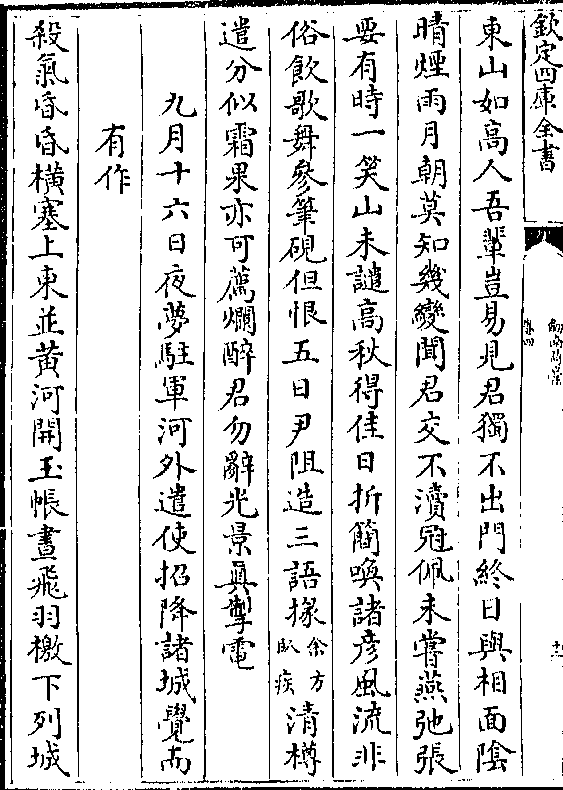 欽定四庫全書
劍南詩稾
卷四
十二
東山如高人吾輩豈易見君獨不出門終日與相面陰
晴煙雨月朝莫知幾變聞君交不瀆冠佩未嘗燕弛張
要有時一笑山未譴高秋得佳日折簡喚諸彥風流非
俗飲歌舞參筆硯但恨五日尹阻造三語掾余方臥疾清樽
遣分似霜果亦可薦爛醉君勿辭光景真掣電
九月十六日夜夢駐軍河外遣使招降諸城覺而
有作
殺氣昏昏橫塞上東並黃河開玉帳晝飛羽檄下列城